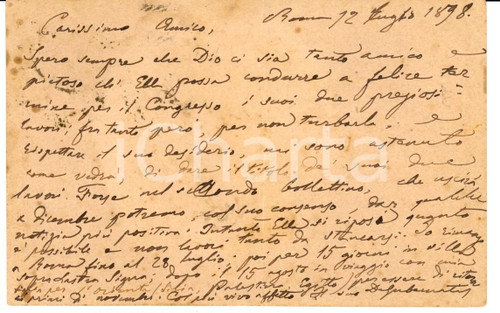 Roma 12 Luglio 1898.
Carissimo Amico,
Spero sempre che Dio ci sia tanto amico e
pietoso ch' Ella possa condurre a felice ter
mine per il Congresso i suoi due pregiosi
lavori; frattanto però, per non turbarla, e
rispettare il suo desiderio, mi sono astenuto
come vedrà di dare il titolo de' suoi due
lavori. Forse nel secondo bollettino, che uscirà
a dicembre potremo, col suo consenso, dar qualche
notizia più positiva. Intanto Ella si riposi quanto
è possibile e non lavori tanto da stancarsi. Io rimango
a Roma fino al 28 luglio; poi per 15 giorni in villa
Signa; dopo il 15 agosto in viaggio con mia
per Palestina, Egitto
primi di novembre. Col più vivo affetto suo DeGubernatis
iCharta